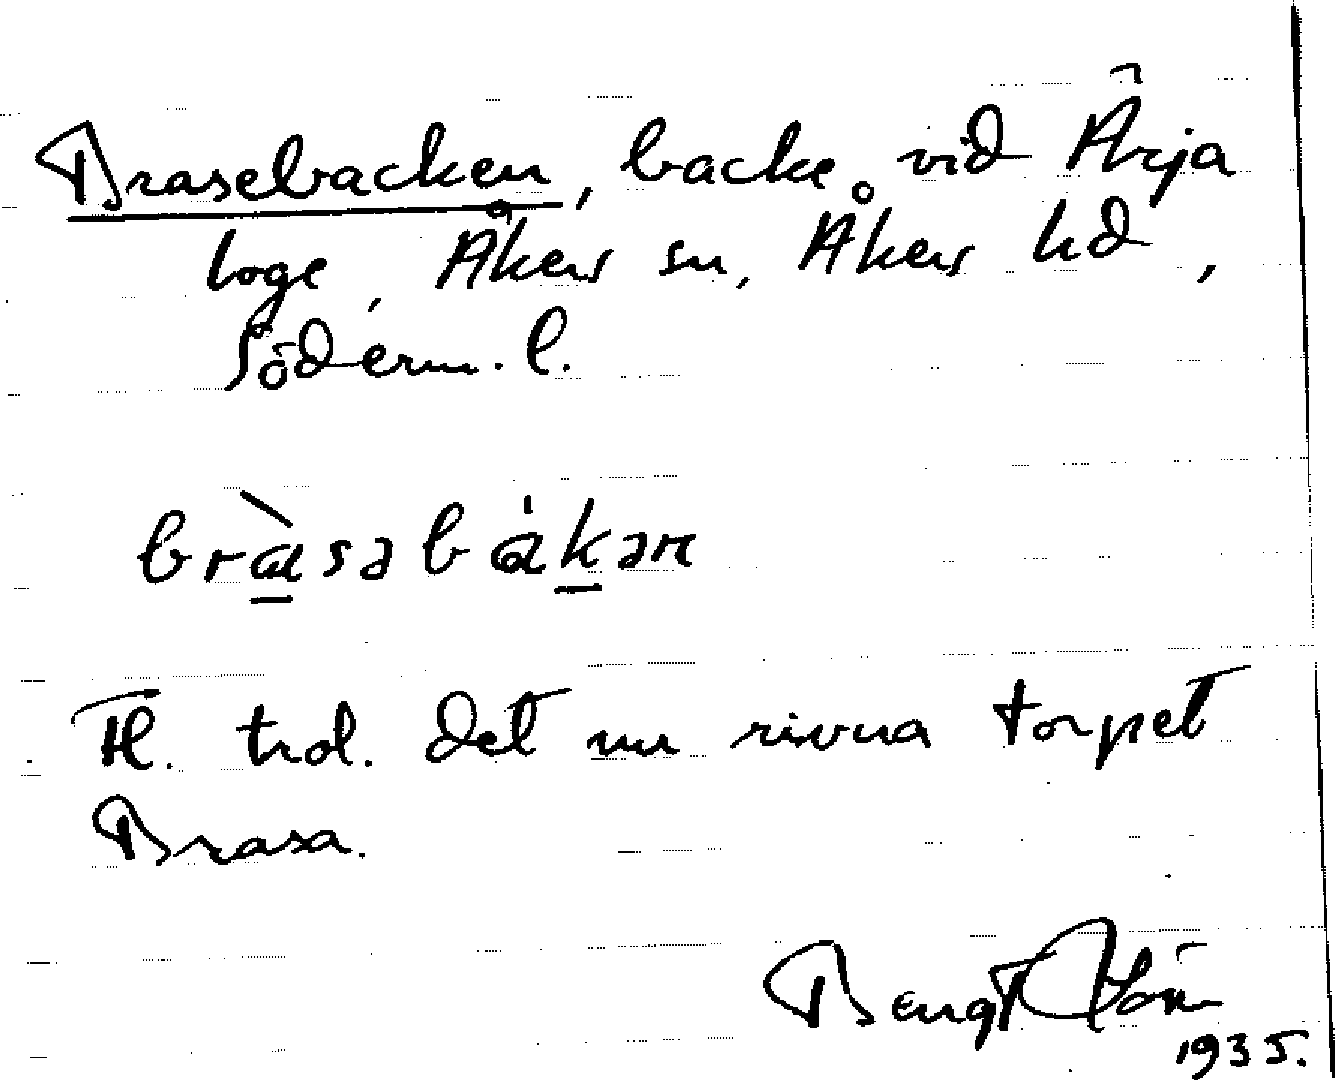 Brasebacken, backe vid Ärja
loge, Åkers sn, Åkers hd,
Söderm. l.
bràsabákan
Till. trol. det nu rivna torpet
Brasa.
Bengt
1935.